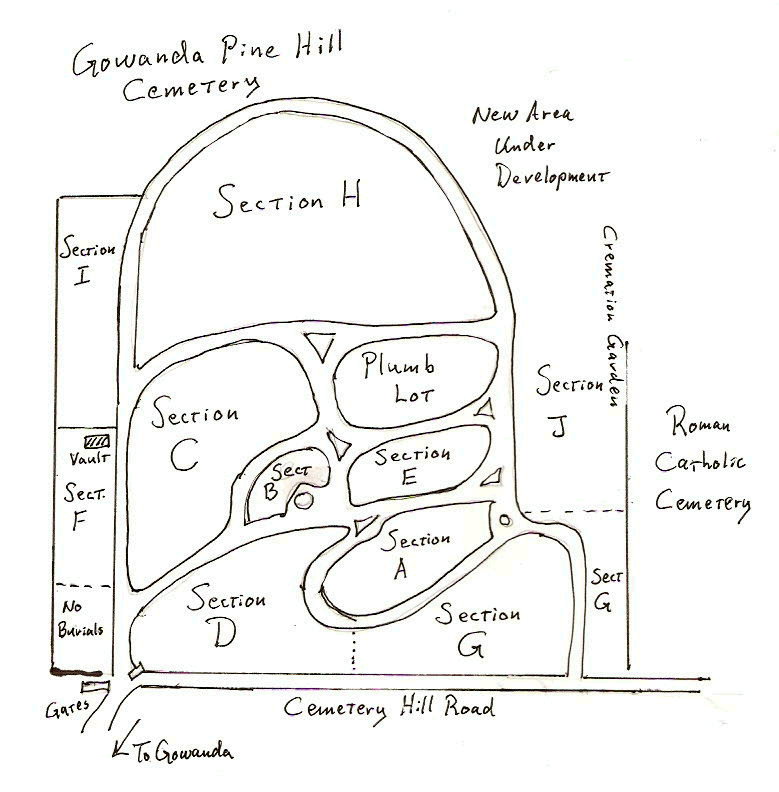 Gowanda Pine Hill
Cemetery
New Area
Under
Development
Section H
Section
I
Cremation Garden
Plumb
Lot
Section
J
Section
C
Roman
Catholic
Cemetery
Vault
Sect.
F
Sect
B
Section
E
Section
A
No
Burials
Section
D
Section
G
Sect
G
Gates
Cemetery Hill Road
To Gowanda